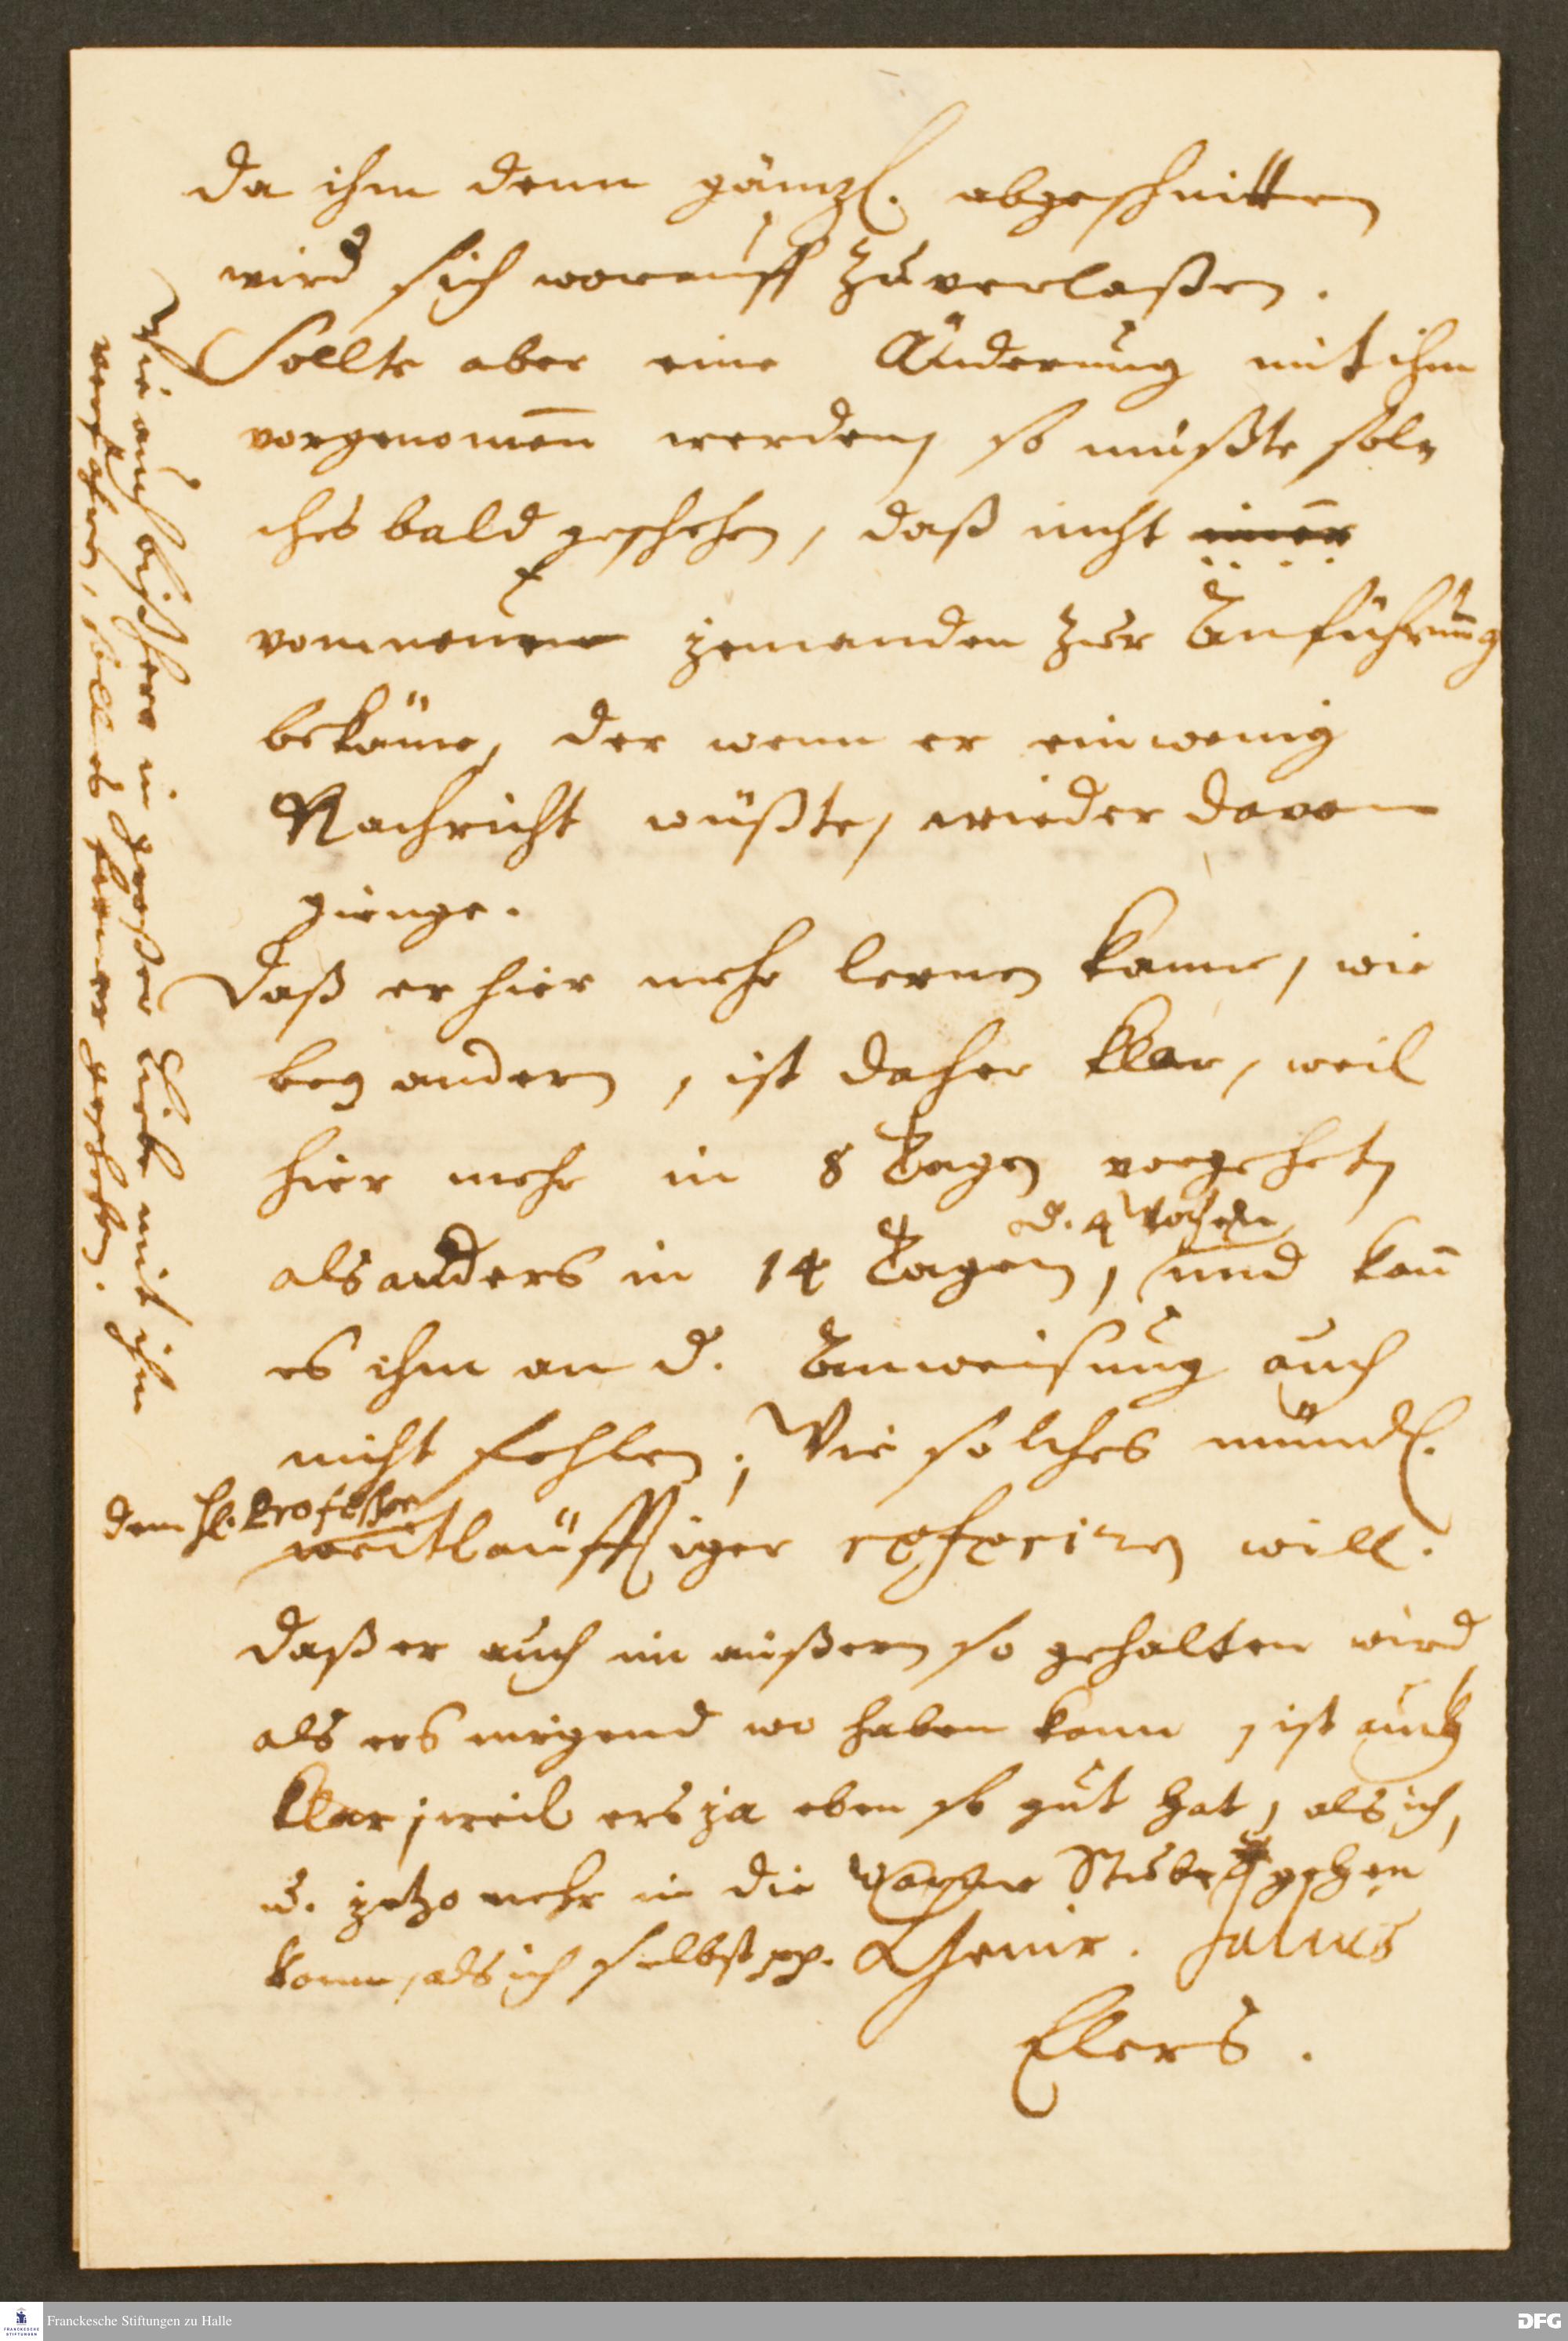 da ihm denn gäntzl. abgeschnitten
wird sich worauff zu verlaßen.
Sollte aber eine Änderung mit ihm
vorgenom̄en werden, so müßte sol-
ches bald geschehen, daß nicht im̄er
von neuen jemanden zur Anführung
bekäme, der wenn er ein wenig
Nachricht wüßte, wieder davon
gienge.
Daß er hier mehr lernen kann, wie
bey andern, ist daher klar, weil
hier mehr in 8 Tagen vorgehet,
od. 4 Wochen
als anders in 14 Tagen, und kan̄
es ihm an d. Anweisung auch
nicht fehlen; Wie solches mündl.
dem H. Professor
weitläuffiger will.
Daß er auch im äußern so gehalten wird
als ers nirgend wo haben kann, ist auch
klar, weil ers ja eben so gut hat, als ich,
u. jetzo mehr in die Stube gehen
kann, als ich selbst pp.
Elers.
Wie auch bißhero in großer Liebe mit ihm
verfahren, soll es ferner geschehen.
Franckesche Stiftungen zu Halle
DFG